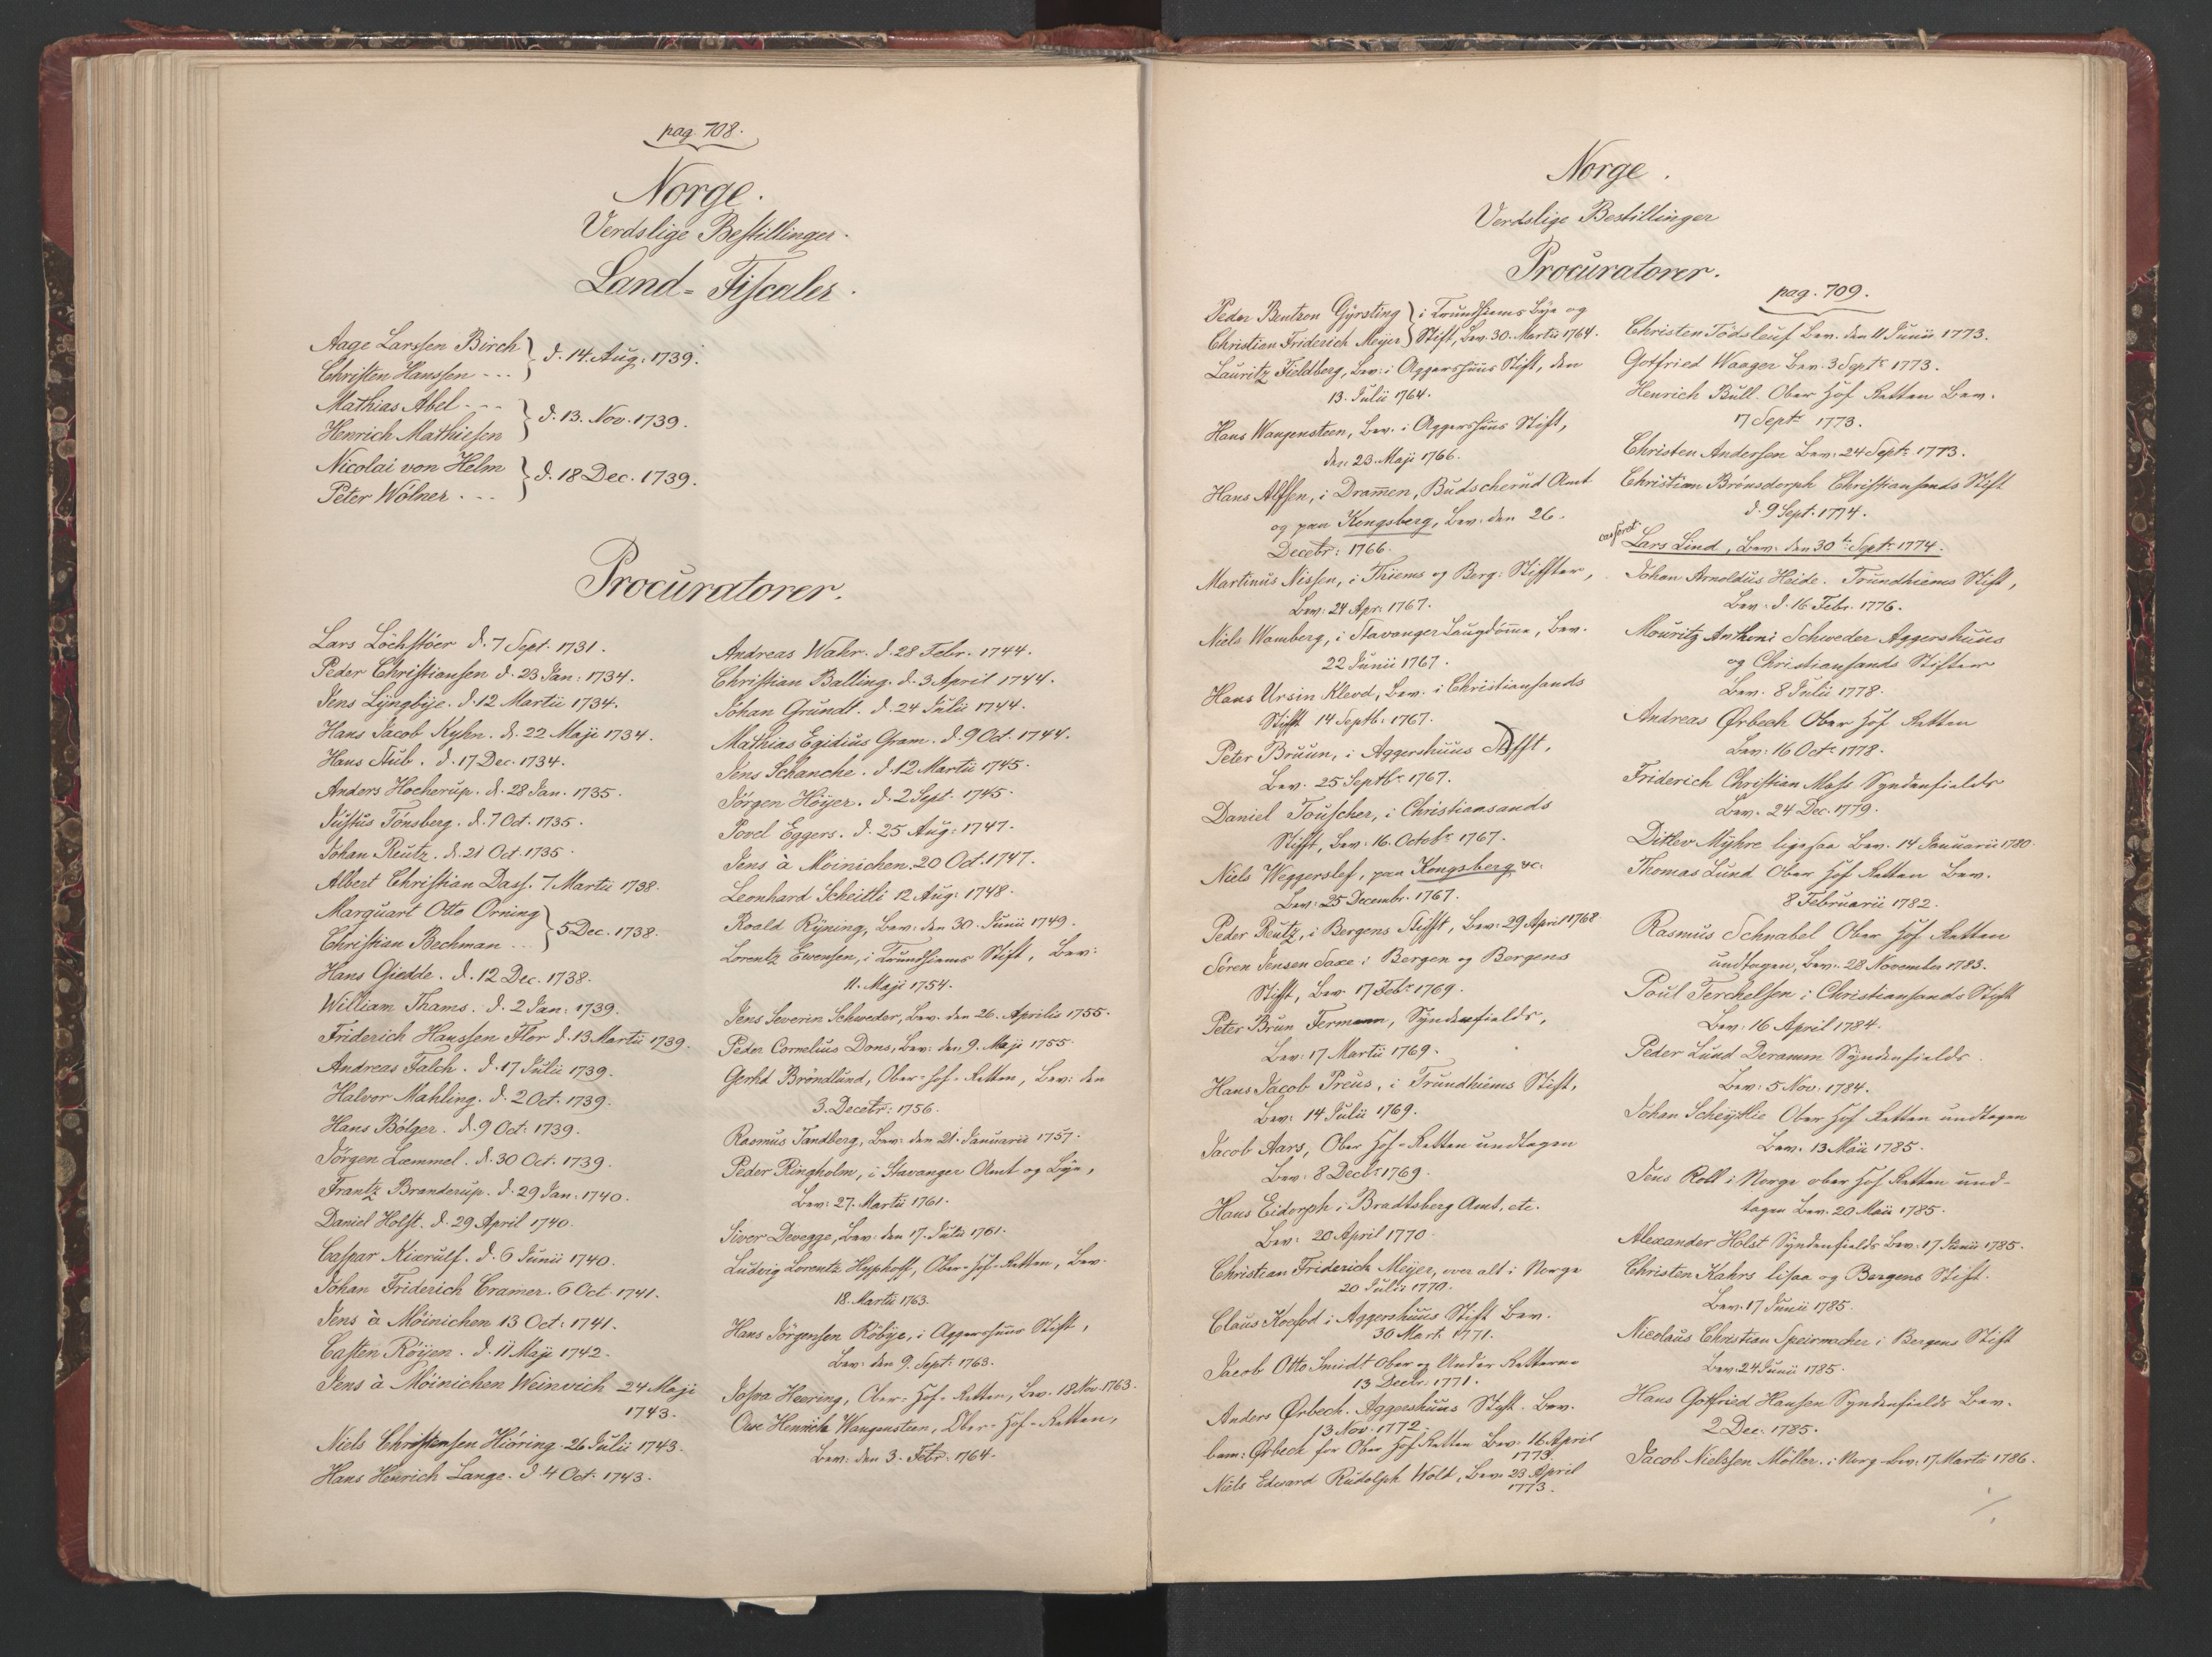 pag. 708.
Norge.
Verdslige Bestillinger.
Land-Fiscaler.
Aage Larssen Birch } d. 14. Aug. 1739.
Christen Hanssen - - -
Mathias Abel - - - } d. 13. Nov. 1739.
Henrich Mathiesen
Nicolai von Helm } d. 18 Dec. 1739.
Peter Wölner - - -
Procuratorer.
Lars Löchstöer d. 7 Sept. 1731.
Peder Christiansen d. 23 Jan: 1734.
Jens Lyngbye. d. 12 Martii 1734.
Hans Jacob Kyhn. d. 22 Maji 1734.
Hans Stub. d. 17 Dec. 1734.
Anders Hocherup. d. 28 Jan. 1735.
Justus Tönsberg. d. 7 Oct. 1735.
Johan Reutz. d. 21 Oct. 1735.
Albert Christian Dass. 7 Martii 1738.
Marquart Otto Orning } 5 Dec. 1738.
Christian Bechman ..
Hans Giedde. d. 12 Dec. 1738.
William Thams. d. 2 Jan: 1739.
Friderich Hanssen Flor d. 13 Martii 1739.
Andreas Falch. d. 17 Julii 1739.
Halvor Mahling. d. 2 Oct. 1739.
Hans Bölger. d. 9 Oct: 1739.
Jörgen Læmmel. d. 30 Oct. 1739.
Frantz Branderup. d. 29 Jan: 1740.
Daniel Holst. d. 29 April 1740.
Caspar Kierulf. d. 6 Junii 1740.
Johan Friderich Cramer. 6 Oct. 1741.
Jens à Möinichen 13 Oct: 1741.
Casten Röyen. d. 11 Maji 1742.
Jens à Möinichen Weinvich 24 Maji
1743.
Niels Christensen Hiöring. 26 Julii 1743.
Hans Henrich Lange. d. 4 Oct. 1743.
Andreas Wahr. d. 28 Febr. 1744.
Christian Balling. d. 3 April 1744.
Johan Grundt. d. 24 Julii 1744.
Mathias Egidius Gram. d. 9 Oct. 1744.
Jens Schanche. d. 12 Martii 1745.
Jörgen Höyer. d. 2 Sept. 1745.
Povel Eggers. d. 25 Aug: 1747.
Jens à Möinichen. 20 Oct. 1747.
Leonhard Scheitli 12 Aug: 1748.
Roald Ryning, Bev: den 30. Junii 1749.
Lorentz Ewensen, i Trundhiems Stift, Bev:
11. Maji 1754.
Jens Severin Schweder, Bev. den 26. Aprilis 1755.
Peder Cornelius Dons, Bev: den 9. Maji 1755.
Gerhd Bröndlund, Ober-Hof-Retten, Bev: den
3. Decebr: 1756.
Rasmus Tandberg, Bev: den 21. Januarii 1757.
Peder Ringholm, i Stavanger Amt og Bye,
Bev: 27. Martii 1761.
Siver Devegge, Bev: den 17. Julii 1761.
Ludvig Lorentz Hyphoff, Ober-Hof-Retten, Bev.
18. Martii 1763.
Hans Jörgensen Röbye, i Aggershuus Stift,
Bev: den 9. Sept. 1763.
Josva Heering, Ober-Hof-Retten, Bev. 18 Nov. 1763.
Owe Henrich Wangensteen, Ober-Hof-Retten,
Bev: den 3. Febr: 1764.
Norge.
Verdslige Bestillinger
Procuratorer.
Peder Bentzon Gyrsting } i Trundhiems Bye og
Christian Friderich Meyer } Stift, Bev. 30. Martii 1764.
Lauritz Fieldberg, Bev: i Aggershuus Stift, den
13. Julii 1764.
Hans Wangensteen, Bev. i Aggershuus Stift,
den 23. Maji 1766.
Hans Alfsen, i Dramen, Budscherud Amt
og paa Kongsberg, Bev. den 26.
Decebr: 1766.
Martinus Nissen, i Thiems og Berg: Stiffter,
Bev: 24 Apr: 1767.
Niels Wamberg, i Stavanger Laugdömme, Bev.
22 Junii 1767.
Hans Ursin Kleod, Bev: i Christiansands
Stifft 14 Septb: 1767.
Peter Bruun, i Aggershuus Stifft,
Bev. 25 Septbr 1767.
Daniel Touscher, i Christiansands
Stifft, Bev: 16. Octobr 1767.
Niels Weggerslef, paa Kongsberg &c.
Bev: 25 Decembr. 1767.
Peder Reutz, i Bergens Stifft, Bev: 29 April 1768.
Sören Jensen Saxe i Bergen og Bergens
Stift, Bev 17 Febr 1769.
Peter Brun Fermann, Syndenfields,
Bev: 17 Martii 1769.
Hans Jacob Preus, i Trundhiems Stift,
Bev: 14 Julii 1769.
Jacob Aars, Ober Hof-Retten undtagen
Bev: 8 Decbr 1769.
Hans Eidorph i Bradtsberg Amt, etc.
Bev: 20 April 1770
Christian Friderich Meyer, over alt i Norge
20 Julii 1770.
Claus Koefod i Aggershuus Stift Bev.
30 Mart. 1771.
Jacob Otto Smidt Ober og Under Retterne
13 Decbr. 1771.
Anders Ørbech. Aggershuus Stift. Bev.
13 Nov. 1772.
bem: Ørbech for Ober Hof Retten Bev. 16 April
1773.
Niels Edvard Rudolph Wold, Bev. 23 April
1773.
pag. 709.
Christen Tödsleuf Bev. den 11 Junii 1773.
Gotfried Waager Bev. 3 Septr 1773.
Henrich Bull. Ober Hof Retten Bev.
17 Septr 1773.
Christen Andersen Bev: 24 Septr 1773.
Christian Brönsdorph Christiansands Stift
d. 9 Sept. 1774.
Lars Lind, Bev: den 30te Septr 1774.
Johan Arnoldus Heide. Trundhiems Stift,
Bev. d. 16 Febr. 1776.
Mouritz Anthoni Schweder Aggershuus
og Christiansands Stifter
Bev. 8 Julii 1778.
Andreas Ørbech Ober Hof Retten
Bev: 16 Octr 1778.
Friderich Christian Mass Syndenfields
Bev. 24 Dec. 1779.
Ditlev Myhre ligesaa Bev. 14 Januarii 1780.
Thomas Lund Ober Hof Retten Bev.
8 Februarii 1782.
Rasmus Schnabel Ober Hof Retten
undtagen, Bev. 28 November 1783.
Poul Terchelsen i Christiansands Stift
Bev: 16 April 1784.
Peder Lund Deramm Syndenfields.
Bev: 5 Nov. 1784.
Johan Scheyttlie Ober Hof Retten undtagen
Bev. 13 Maii 1785.
Jens Roll i Norge ober Hof Retten und-
tagen Bev. 20 Maii 1785.
Alexander Holst Syndenfields Bev. 17 Junii 1785.
Christen Kahrs lisaa og Bergens Stift.
Bev. 17 Junii 1785.
Nicolaus Christian Speirmacher i Bergens Stift
Bev. 24 Junii 1785.
Hans Gotfried Hansen Syndenfields Bev.
2 Dec. 1785.
Jacob Nielssen Möller. i Norg Bev. 17 Martii 1786.